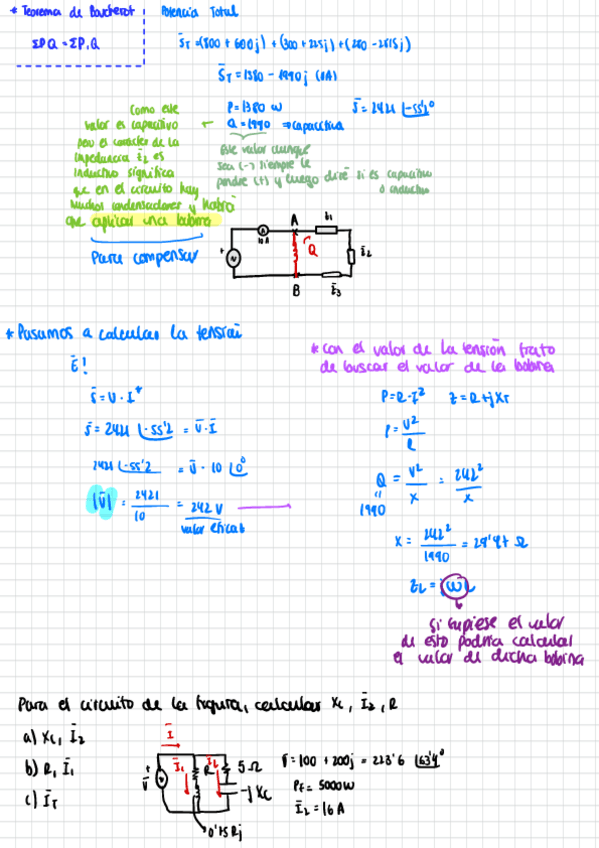 * Teorema de Boucherot
ΣPQ = ΣP, Q
Potencia Total
S̄T = (800 + 600j) + (300 + 225j) + (280 - 2815j)
S̄T = 1380 - 1990j (VA)
P = 1380 W
Q = 1990 ⇒ capacitiva
S̄ = 2421 ∠-55'2°
Como este
valor es capacitivo
pero el carácter de la
impedancia z̄2 es
inductivo significa
que en el circuito hay
muchos condensadores y habrá
que aplicar una bobina
Para compensar
Este valor aunque
sea (-) siempre le
pondré (+) y luego diré si es capacitivo
o inductivo
A
10 A
Q
z̄2
B
z̄3
* Pasamos a calcular la tensión
Ē!
S̄ = U · I*
S̄ = 2421 ∠-55'2 = Ū · Ī
2421 ∠-55'2 = Ū · 10 ∠0°
|Ū| = 2421/10 = 242 V
valor eficaz
* con el valor de la tensión trato
de buscar el valor de la bobina
P = R · I²
P = V²/R
Q = V²/X = 242²/X
1990
X = 242²/1990 = 29'4+ Ω
ZL = jωL
Si supiese el valor
de esto podría calcular
el valor de dicha bobina
Para el circuito de la figura, calcular Xc, Ī2, R
a) Xc, Ī2
b) R, Ī1
c) ĪT
Ī
Ī1
R
Ī2
5 Ω
-j Xc
V̄
0'15 Rj
V̄ = 100 + 200j = 223'6 ∠63'4°
PT = 5000 W
Ī2 = 16 A